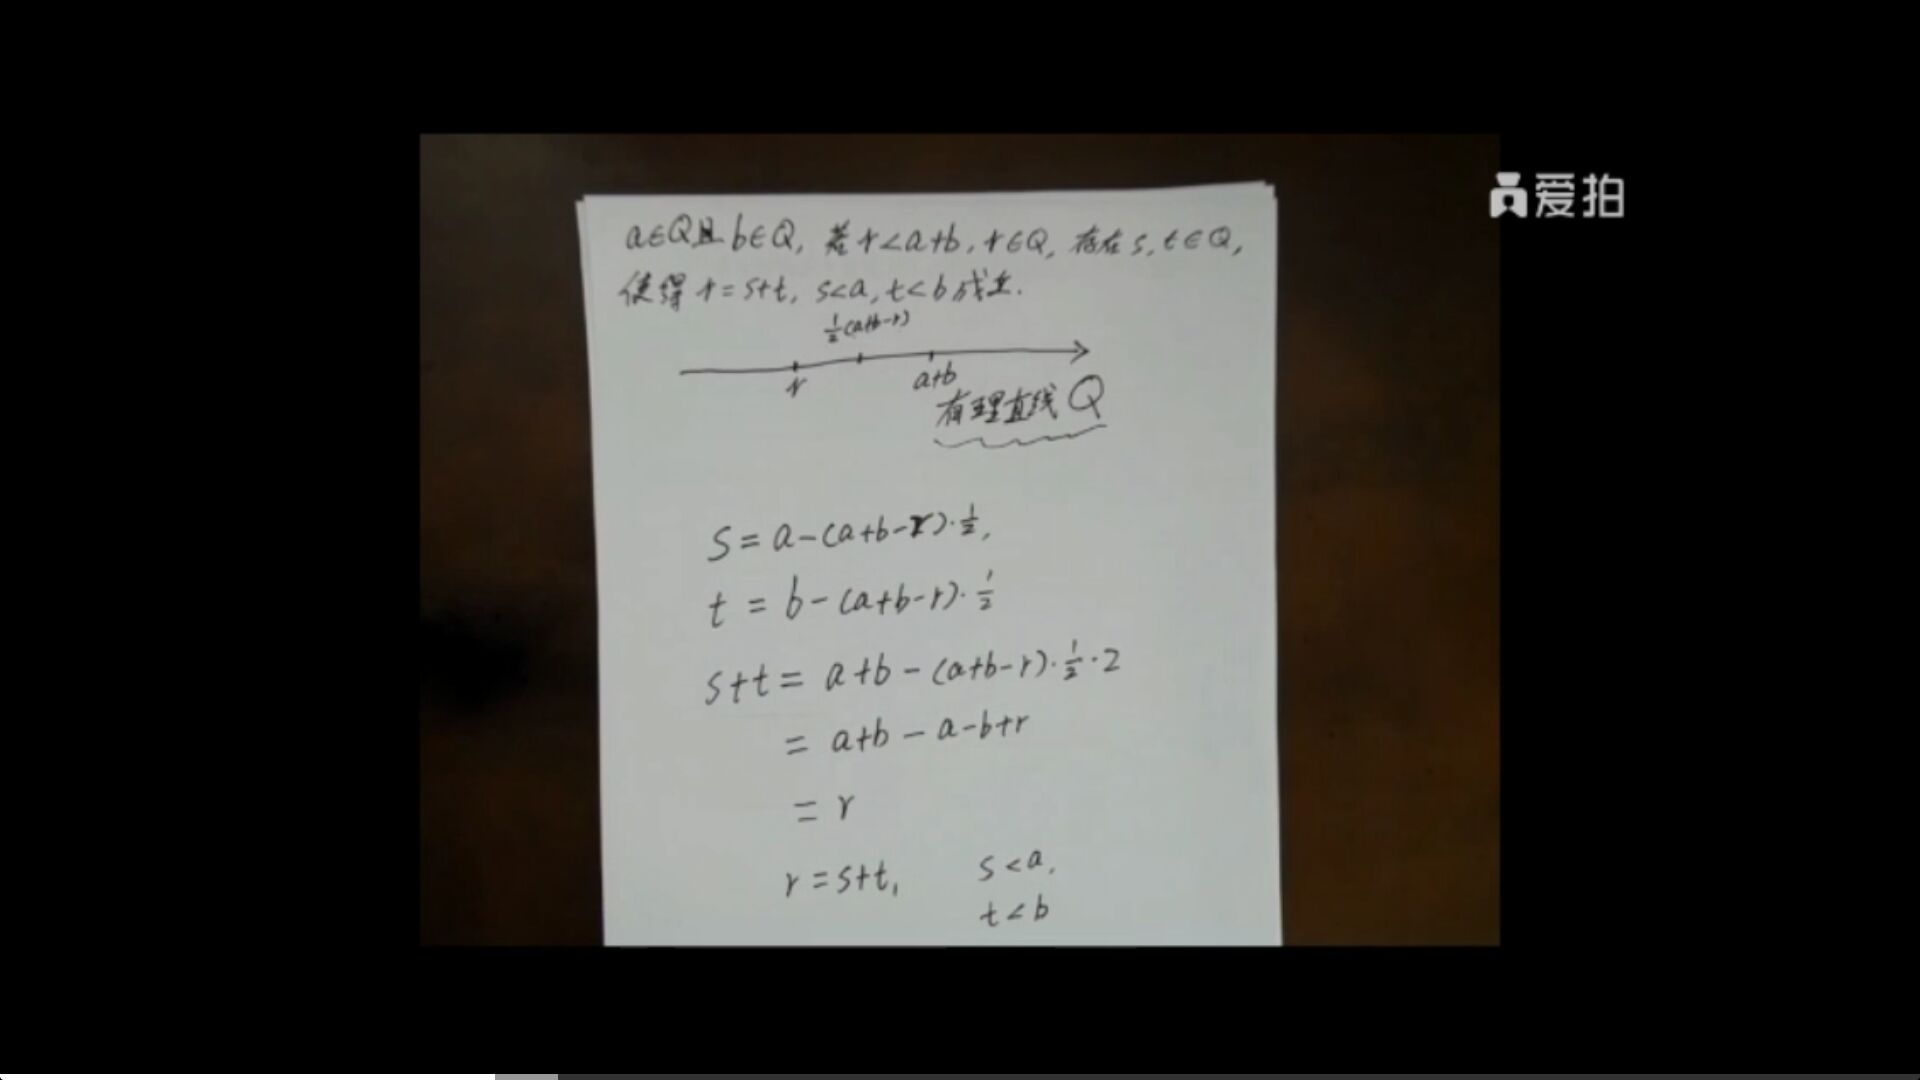 爱拍
a∈Q且b∈Q, 若r<a+b, r∈Q, 存在s, t∈Q,
使得r=s+t, s<a, t<b成立.
½(a+b-r)
r
a+b
有理直线Q
S=a-(a+b-r)·½,
t=b-(a+b-r)·½
s+t=a+b-(a+b-r)·½·2
=a+b-a-b+r
=r
r=s+t, s<a,
t<b